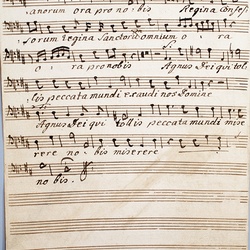 anorum ora pro nobis Regina Confes,
sorum Regina Sanctorum omnium o ra
o ra pro nobis Agnus Dei qui tol,
lis peccata mundi exaudi nos Domine
Agnus Dei qui tollis peccata mundi mise
rere nobis miserere
nobis.